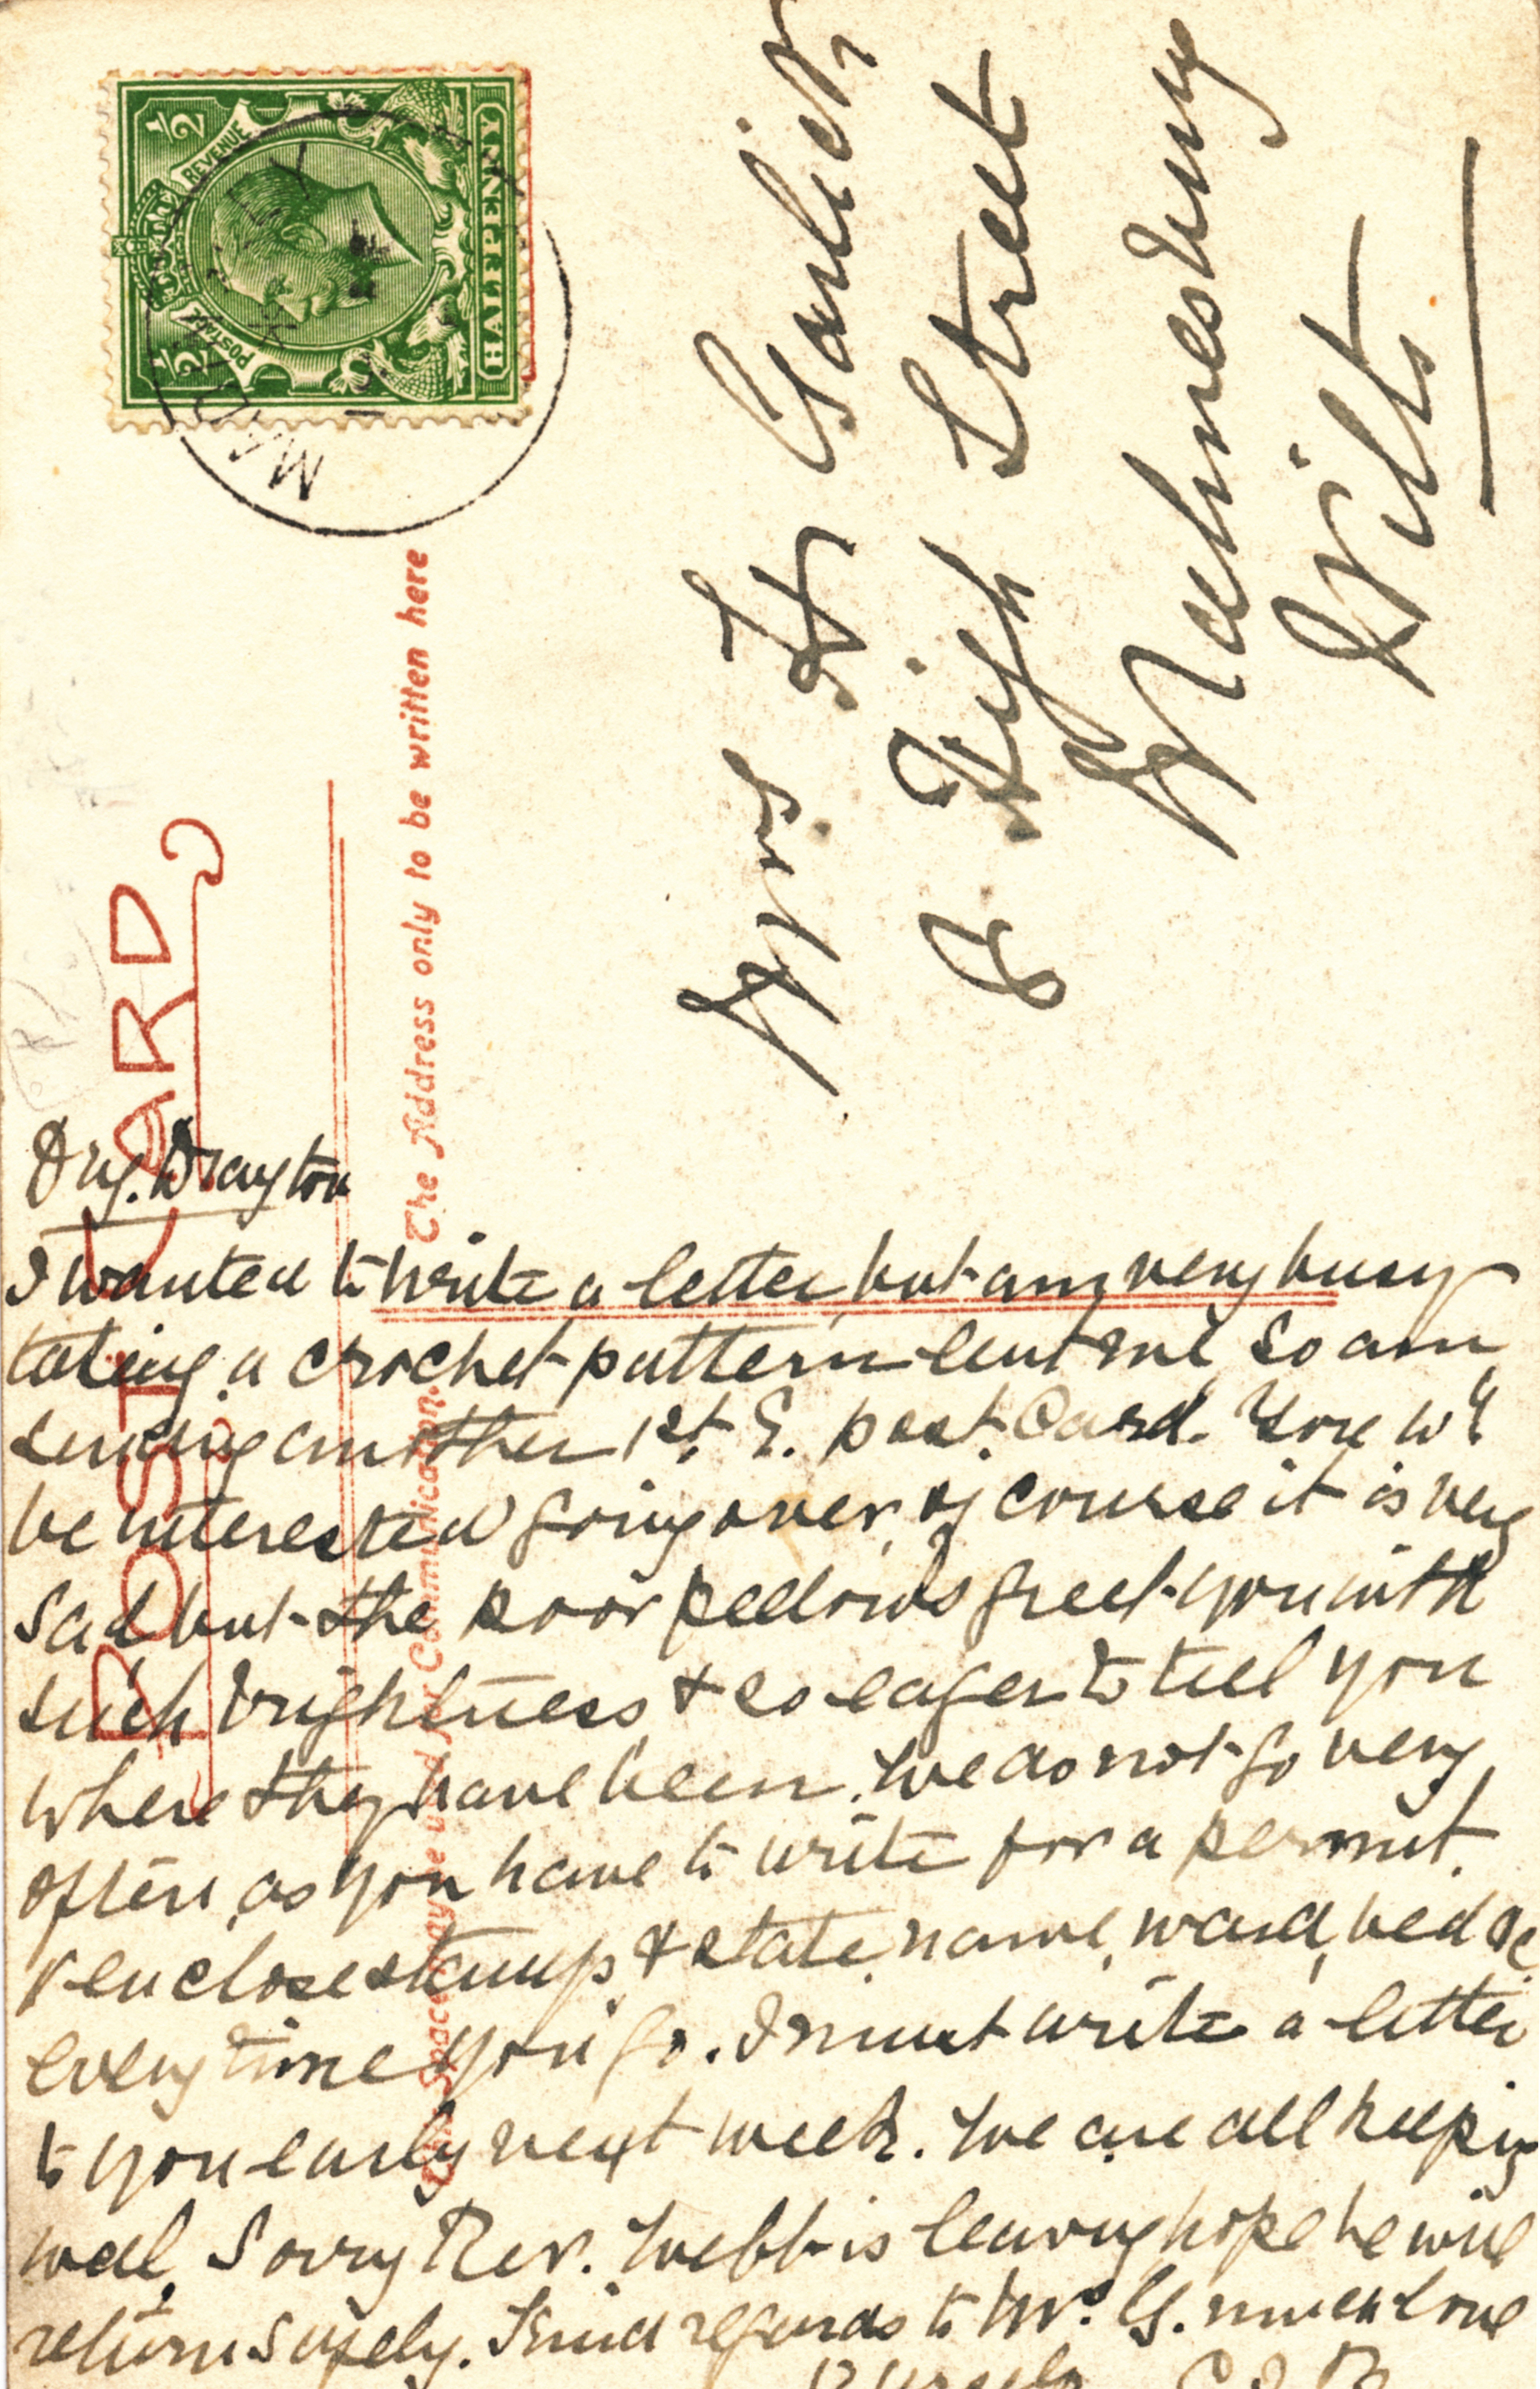 HALFPENNY
POSTAGE
REVENUE
½
½
POST CARD
The Address only to be written here
This Space may be used for Communication.
Mrs H Garlick
8 High Street
Malmesbury
Wilts
Drayton
I wanted to write a letter, but am very busy
taking a crochet pattern lent me, so am
sending another 1st E. post Card. You wd
be interested going over, of course it is very
sad but the poor fellows greet you with
such brightness & so eager to tell you
where they have been. We do not go very
often, as you have to write for a permit,
& enclose stamp, & state, name, ward, bed &c
every time you go. I must write a letter
to you early next week. We are all keeping
well, Sorry Rev. Webb is leaving hope he will
return safely. Kind regards to Mr. G. much love